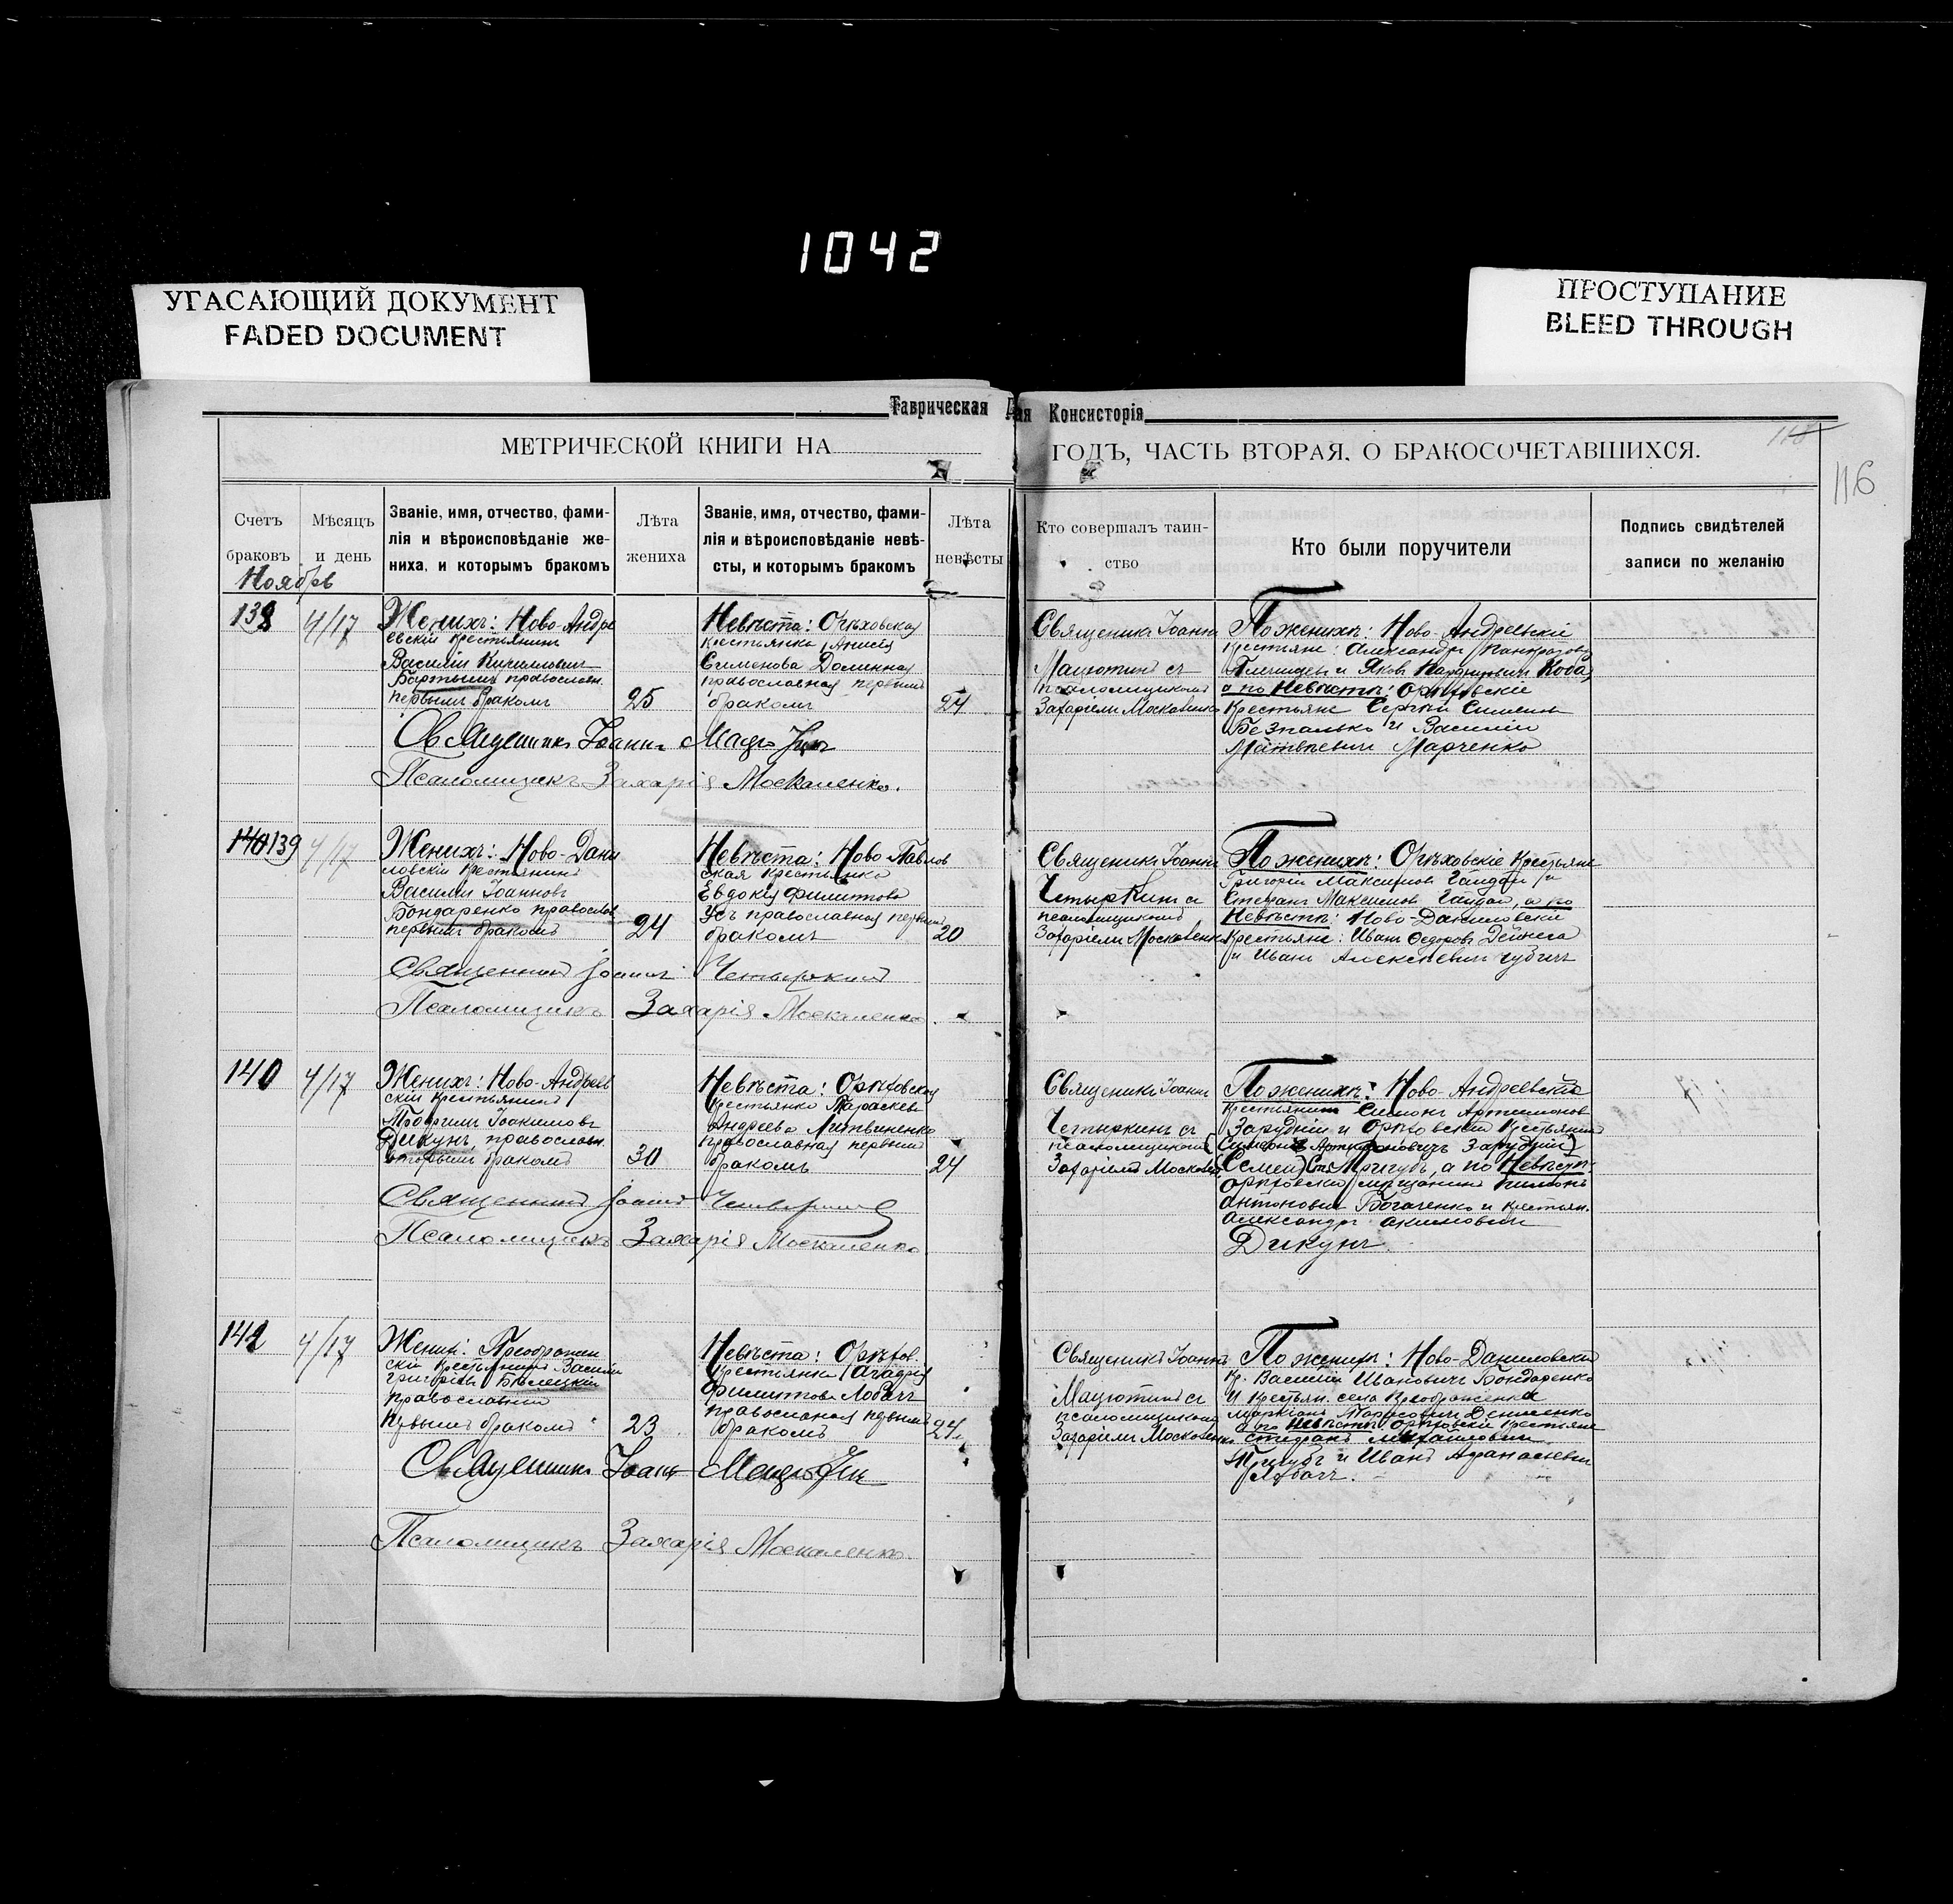 1042
УГАСАЮЩИЙ ДОКУМЕНТ
FADED DOCUMENT
ПРОСТУПАНИЕ
BLEED THROUGH
Таврическая Консисторія
МЕТРИЧЕСКОЙ КНИГИ НА ГОДЪ, ЧАСТЬ ВТОРАЯ, О БРАКОСОЧЕТАВШИХСЯ.
116
Счетъ браковъ
Мѣсяцъ и день
Званіе, имя, отчество, фами-
лія и вѣроисповѣданіе же-
ниха, и которымъ бракомъ
Лѣта жениха
Званіе, имя, отчество, фами-
лія и вѣроисповѣданіе невѣ-
сты, и которымъ бракомъ
Лѣта невѣсты
Кто совершалъ таин-
ство
Кто были поручители
Подпись свидѣтелей
записи по желанію
Ноябрь
138
4/17
Женихъ: Ново-Андре
евскій крестьянинъ
Василій
православн.
первымъ бракомъ
25
Невѣста: Орѣховская
крестьянка Анисія
Сименова
православная первымъ
бракомъ
24
Священникъ Іоаннъ
Мацютинъ съ
псаломщикомъ
Захаріемъ Москаленко
По женихѣ: Ново-Андреевскіе
крестьяне: Александръ
и Яковъ Коба,
а по Невѣстѣ: Орѣховскіе
крестьяне Сергій
Безпалько и Василій
Матвѣевичъ Марченко
Священникъ Іоаннъ Мацютинъ
Псаломщикъ Захарія Москаленко.
140 139
4/17
Женихъ: Ново-Дани
ловскій крестьянинъ
Василій Іоанновъ
Бондаренко православ
первымъ бракомъ
24
Невѣста: Ново-Павлов
ская крестьянка
Евдокія Филиппова
Усъ православная первымъ
бракомъ
20
Священникъ Іоаннъ
Четыркинъ съ
псаломщикомъ
Захаріемъ Москаленко
По женихѣ: Орѣховскіе крестьяне
Григорій Максимовъ Гайдай и
Стефанъ Максимовъ Гайдай, а по
Невѣстѣ: Ново-Даниловскіе
крестьяне: Иванъ Федоровъ Дейнега
и Иванъ Алексѣевичъ
Священникъ Іоаннъ Четыркинъ
Псаломщикъ Захарія Москаленко.
140
4/17
Женихъ: Ново-Андреев
скій крестьянинъ
Трофимъ Іоакимовъ
Дикунъ, православн.
вторымъ бракомъ
30
Невѣста: Орѣховская
крестьянка Параскева
Андреева Литвиненко
православная первымъ
бракомъ
24
Священникъ Іоаннъ
Четыркинъ съ
псаломщикомъ
Захаріемъ Москален
По женихѣ: Ново-Андреевскій
крестьянинъ Симонъ Артемоновъ
Зарудній и Орѣховскій крестьянинъ
Зарудній)
(Семенъ) Пригубъ, а по Невѣстѣ:
орѣховскій мѣщанинъ
Антоновичъ Богаченко и крестьян.
Александръ Акимовичъ
Дикунъ.
Священникъ Іоаннъ Четыркинъ
Псаломщикъ Захарія Москаленко
4/17
Преображен
скій крестьянинъ Василій
Григорьевъ Бѣлецкій
православный
первымъ бракомъ
23
Невѣста: Орѣхов.
крестьянка
Филиппова Лобачъ
православная первымъ
бракомъ
24.
Священникъ Іоаннъ
Мацютинъ съ
псаломщикомъ
Захаріемъ Москаленко
По женихѣ: Ново-Даниловскій
кр. Василій Ивановичъ Бондаренко
и крестьян. села Преображенка
Маркіанъ Тарасовичъ Денисенко
а по невѣстѣ орѣховскіе крестьяне
Стефанъ Михайловичъ
и Иванъ Афанасіевичъ
Лобачъ.
Священникъ Іоаннъ Мацютинъ
Псаломщикъ Захарія Москаленко.